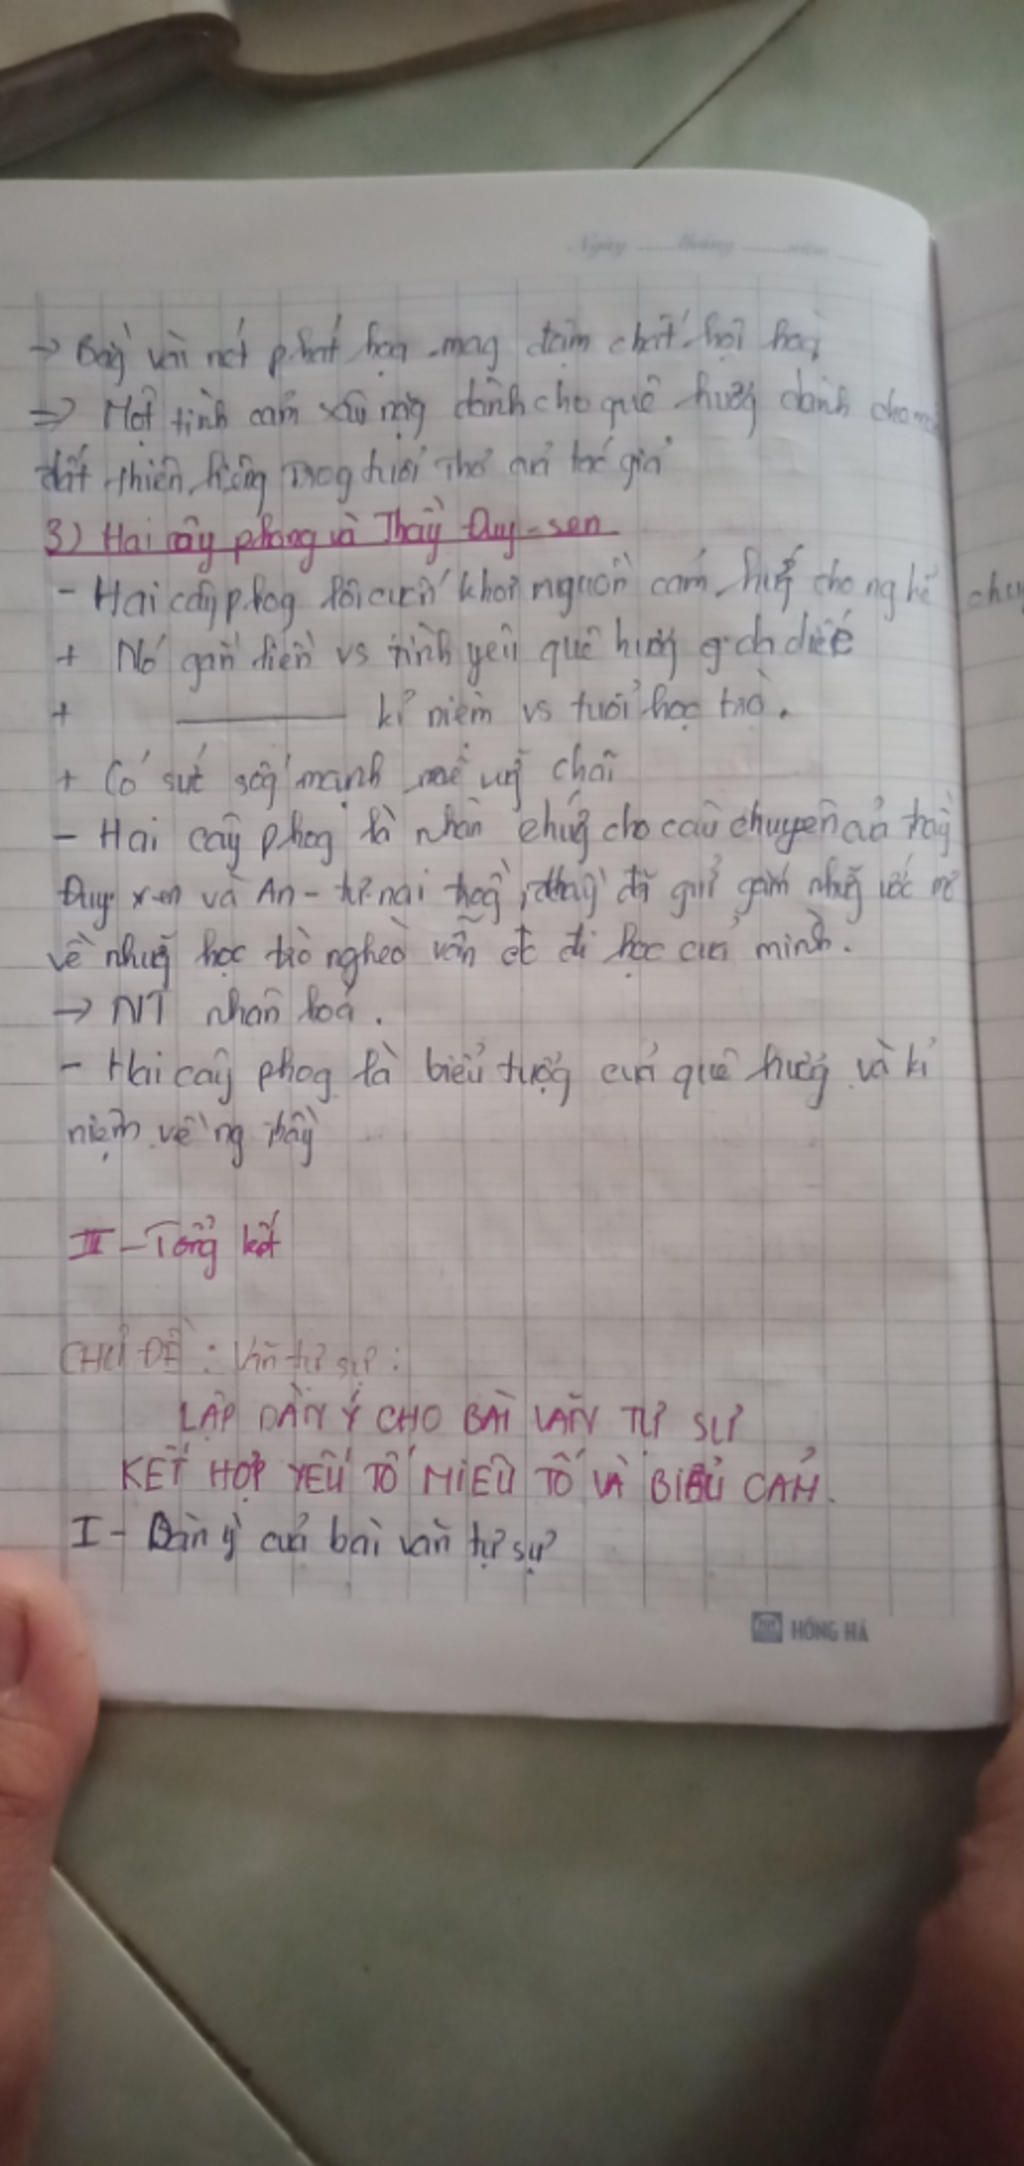 Ngày ...... tháng ...... năm ......
→ Bằng vài nét phát họa mag đậm chất hội họa
⇒ Một tình cảm sâu nặg dành cho quê hươg dành cho
đất thiên liêng trog tuổi thơ củ tác giả
3) Hai cây phong và Thầy Đuy-sen
- Hai cây phog lôi cuốn khơi nguồn cảm hứg cho ng kể chu
+ Nó gắn liền vs tình yêu quê hươg
+ ———— kỉ niệm vs tuổi học trò.
+ Có sức sốg mạnh mẽ
- Hai cây phog là nhân chứg cho câu chuyện củ thầy
Đuy xen và An-tư-nai thầy đã gửi gắm nhữg ước mơ
về nhữg học trò nghèo vẫn đc đi học củ mình.
→ NT nhân hoá.
- Hai cây phog là biểu tượg củ quê hươg và kỉ
niệm về ng thầy
III - Tổng kết
CHỦ ĐỀ: Văn tự sự:
LẬP DÀN Ý CHO BÀI VĂN TỰ SỰ
KẾT HỢP YẾU TỐ MIÊU TỐ VÀ BIỂU CẢM.
I - Dàn ý củ bài văn tự sự
HỒNG HÀ